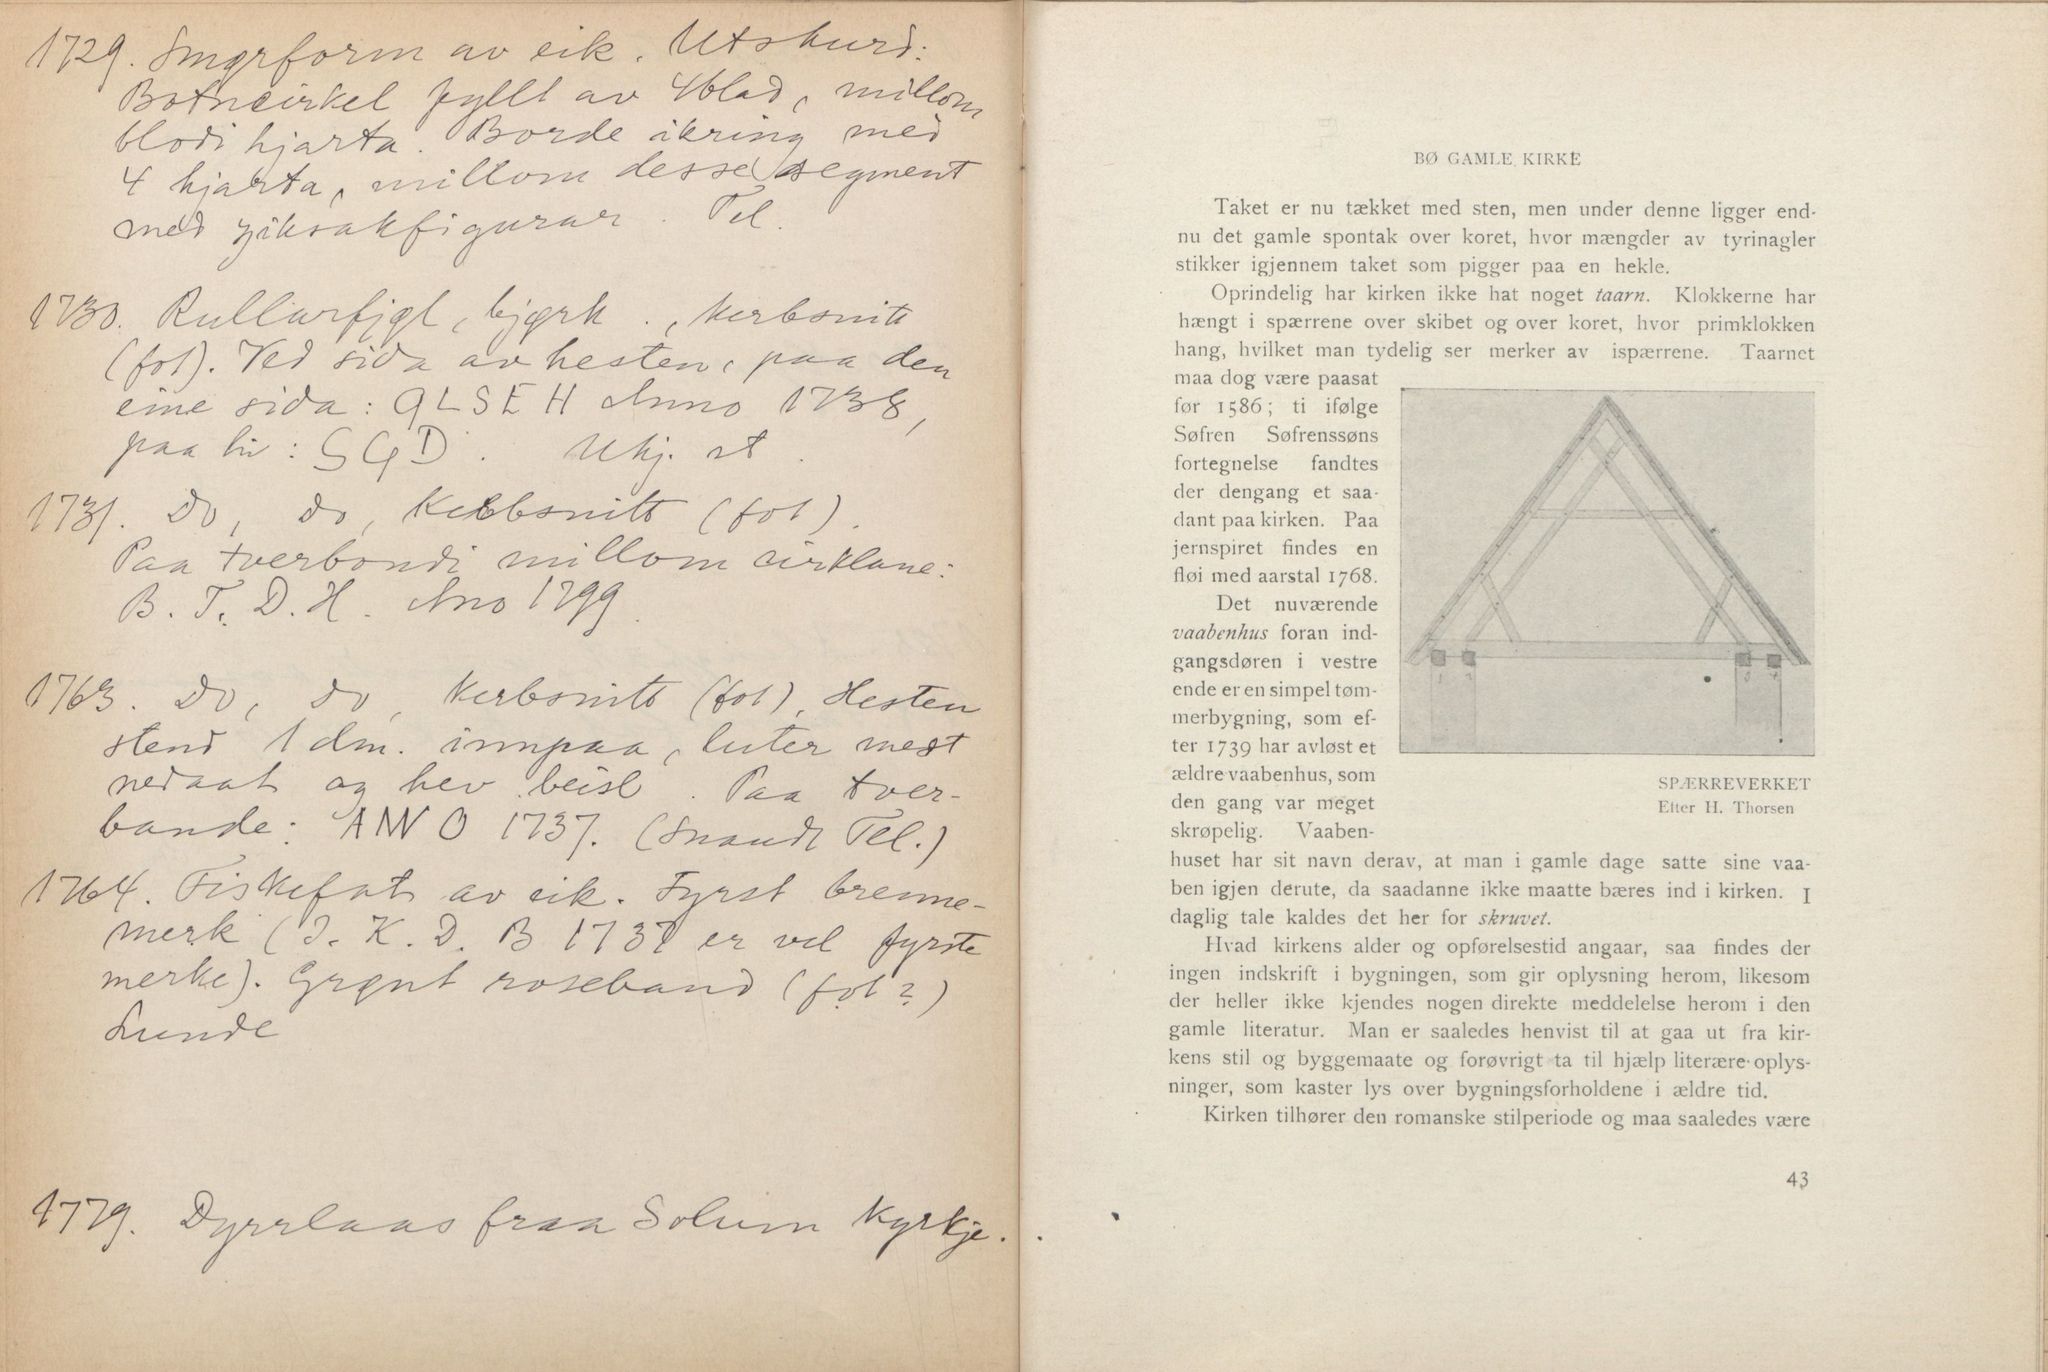 1729. Smørform av eik. Utskurd:
Botncirkel fyllt av 4blad, millom
bladi hjarta. Borde ikring med
4 hjarta, millom desse segment
med ziksakfigurar. Tel.
1730. Rullarfjøl, bjørk. Kerbsnitt
(fot). Ved sida av hesten, paa den
eine sida: OLSEH Anno 1738,
paa hi: SGD. Ukj. st.
1731. Do, do, Kerbsnitt (fot).
Paa tverbondi millom cirklane:
B. T. D. H. Ano 1799.
1763. Do, do, Kerbsnitt (fot), Hesten
stend 1 dm. innpaa, luter mest
nedaat og hev beisl. Paa tver-
bande: ANNO 1737. (Snaudt Tel.)
1764. Fiskefat av eik. Fyrst brenne-
merk (I. K. D. B 1737 er vel fyrste
merke). Grønt roseband (fot?)
Lunde
1779. Dyrrlaas fraa Solum Kyrkje.
BØ GAMLE KIRKE
Taket er nu tækket med sten, men under denne ligger end-
nu det gamle spontak over koret, hvor mængder av tyrinagler
stikker igjennem taket som pigger paa en hekle.
Oprindelig har kirken ikke hat noget taarn. Klokkerne har
hængt i spærrene over skibet og over koret, hvor primklokken
hang, hvilket man tydelig ser merker av ispærrene. Taarnet
maa dog være paasat
før 1586; ti ifølge
Søfren Søfrenssøns
fortegnelse fandtes
der dengang et saa-
dant paa kirken. Paa
jernspiret findes en
fløi med aarstal 1768.
Det nuværende
vaabenhus foran ind-
gangsdøren i vestre
ende er en simpel tøm-
merbygning, som ef-
ter 1739 har avløst et
ældre vaabenhus, som
den gang var meget
skrøpelig. Vaaben-
SPÆRREVERKET
Efter H. Thorsen
huset har sit navn derav, at man i gamle dage satte sine vaa-
ben igjen derute, da saadanne ikke maatte bæres ind i kirken. I
daglig tale kaldes det her for skruvet.
Hvad kirkens alder og opførelsestid angaar, saa findes der
ingen indskrift i bygningen, som gir oplysning herom, likesom
der heller ikke kjendes nogen direkte meddelelse herom i den
gamle literatur. Man er saaledes henvist til at gaa ut fra kir-
kens stil og byggemaate og forøvrigt ta til hjælp literære oplys-
ninger, som kaster lys over bygningsforholdene i ældre tid.
Kirken tilhører den romanske stilperiode og maa saaledes være
43